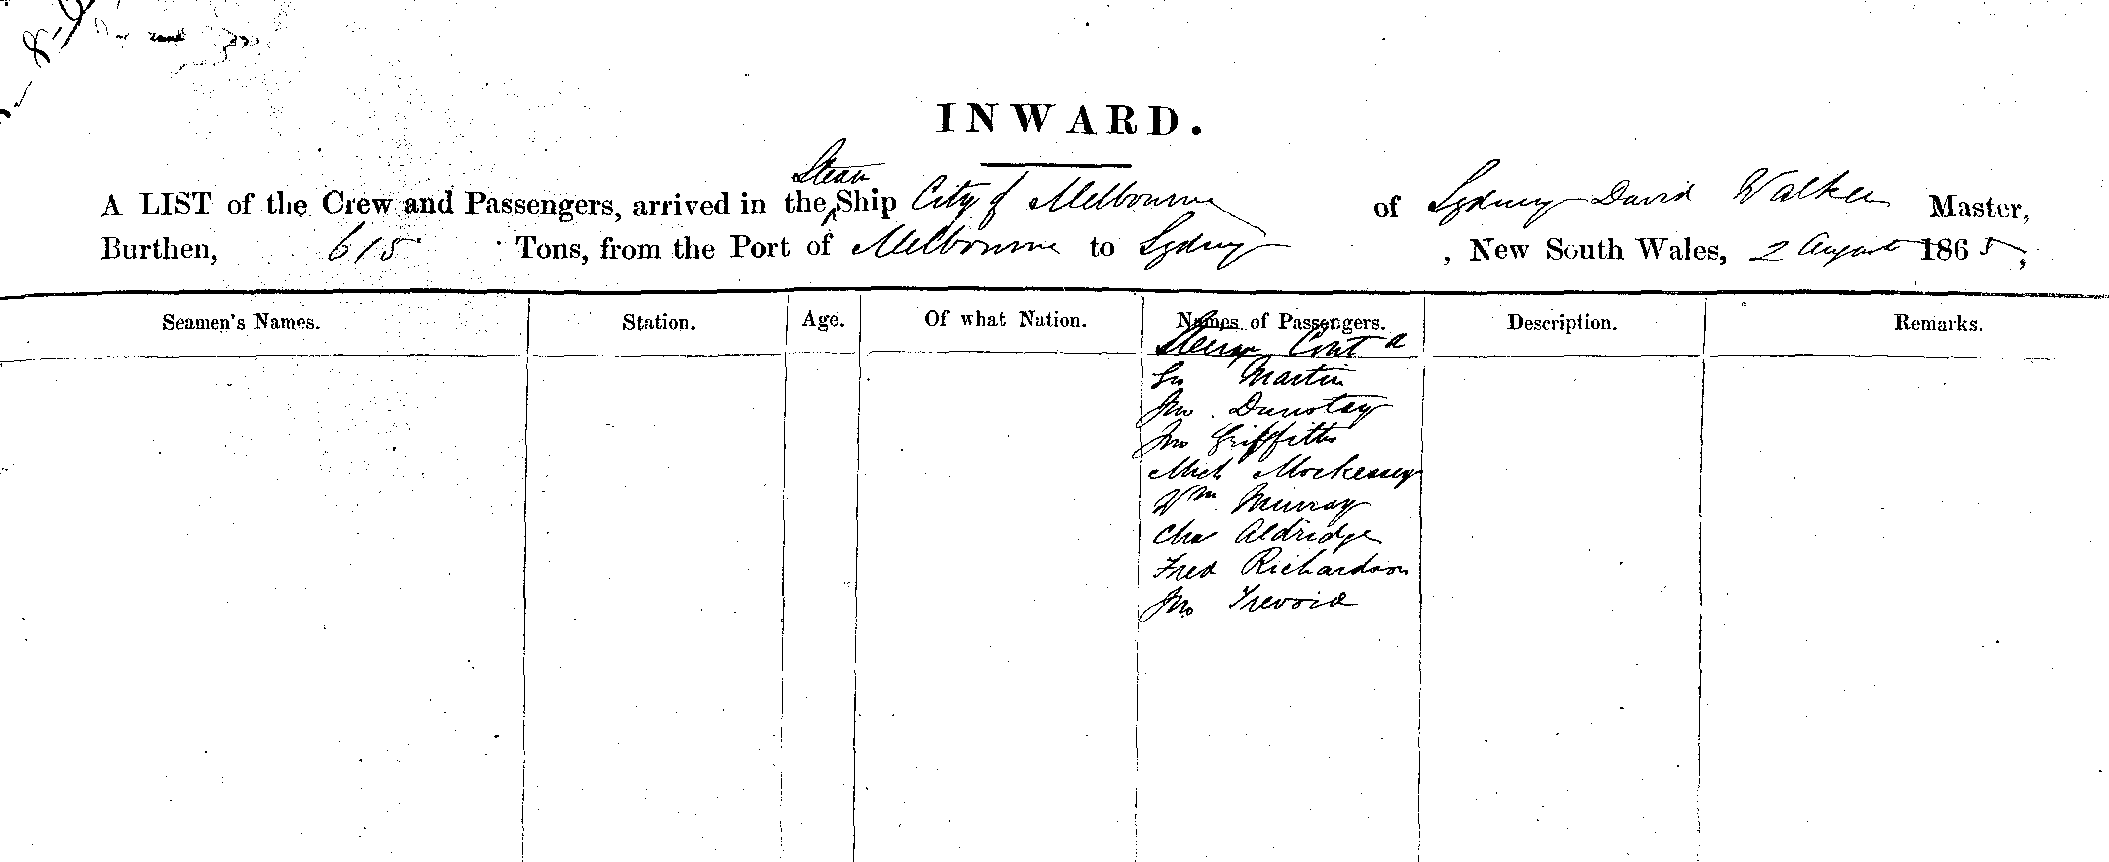 INWARD.
Steam
A LIST of the Crew and Passengers, arrived in the Ship City of Melbourne of Sydney David Walker Master,
Burthen, 615 Tons, from the Port of Melbourne to Sydney, New South Wales, 2 August 1865,
Seamen's Names. Station. Age. Of what Nation. Names of Passengers. Description. Remarks.
Steerage Contd
Martin
Jno Dunstay
Jno Griffiths
Mich
Wm Murray
Chas Aldridge
Fred Richardson
Jno